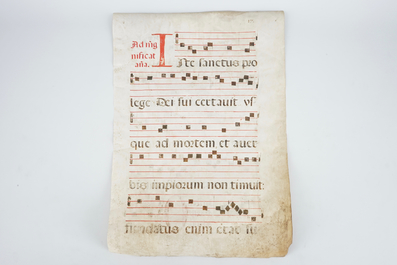 Ad mag
nificat
aña.
Iste sanctus pro
lege Dei sui certavit us
que ad mortem et aver
bis impiorum non timuit:
fundatus enim erat su